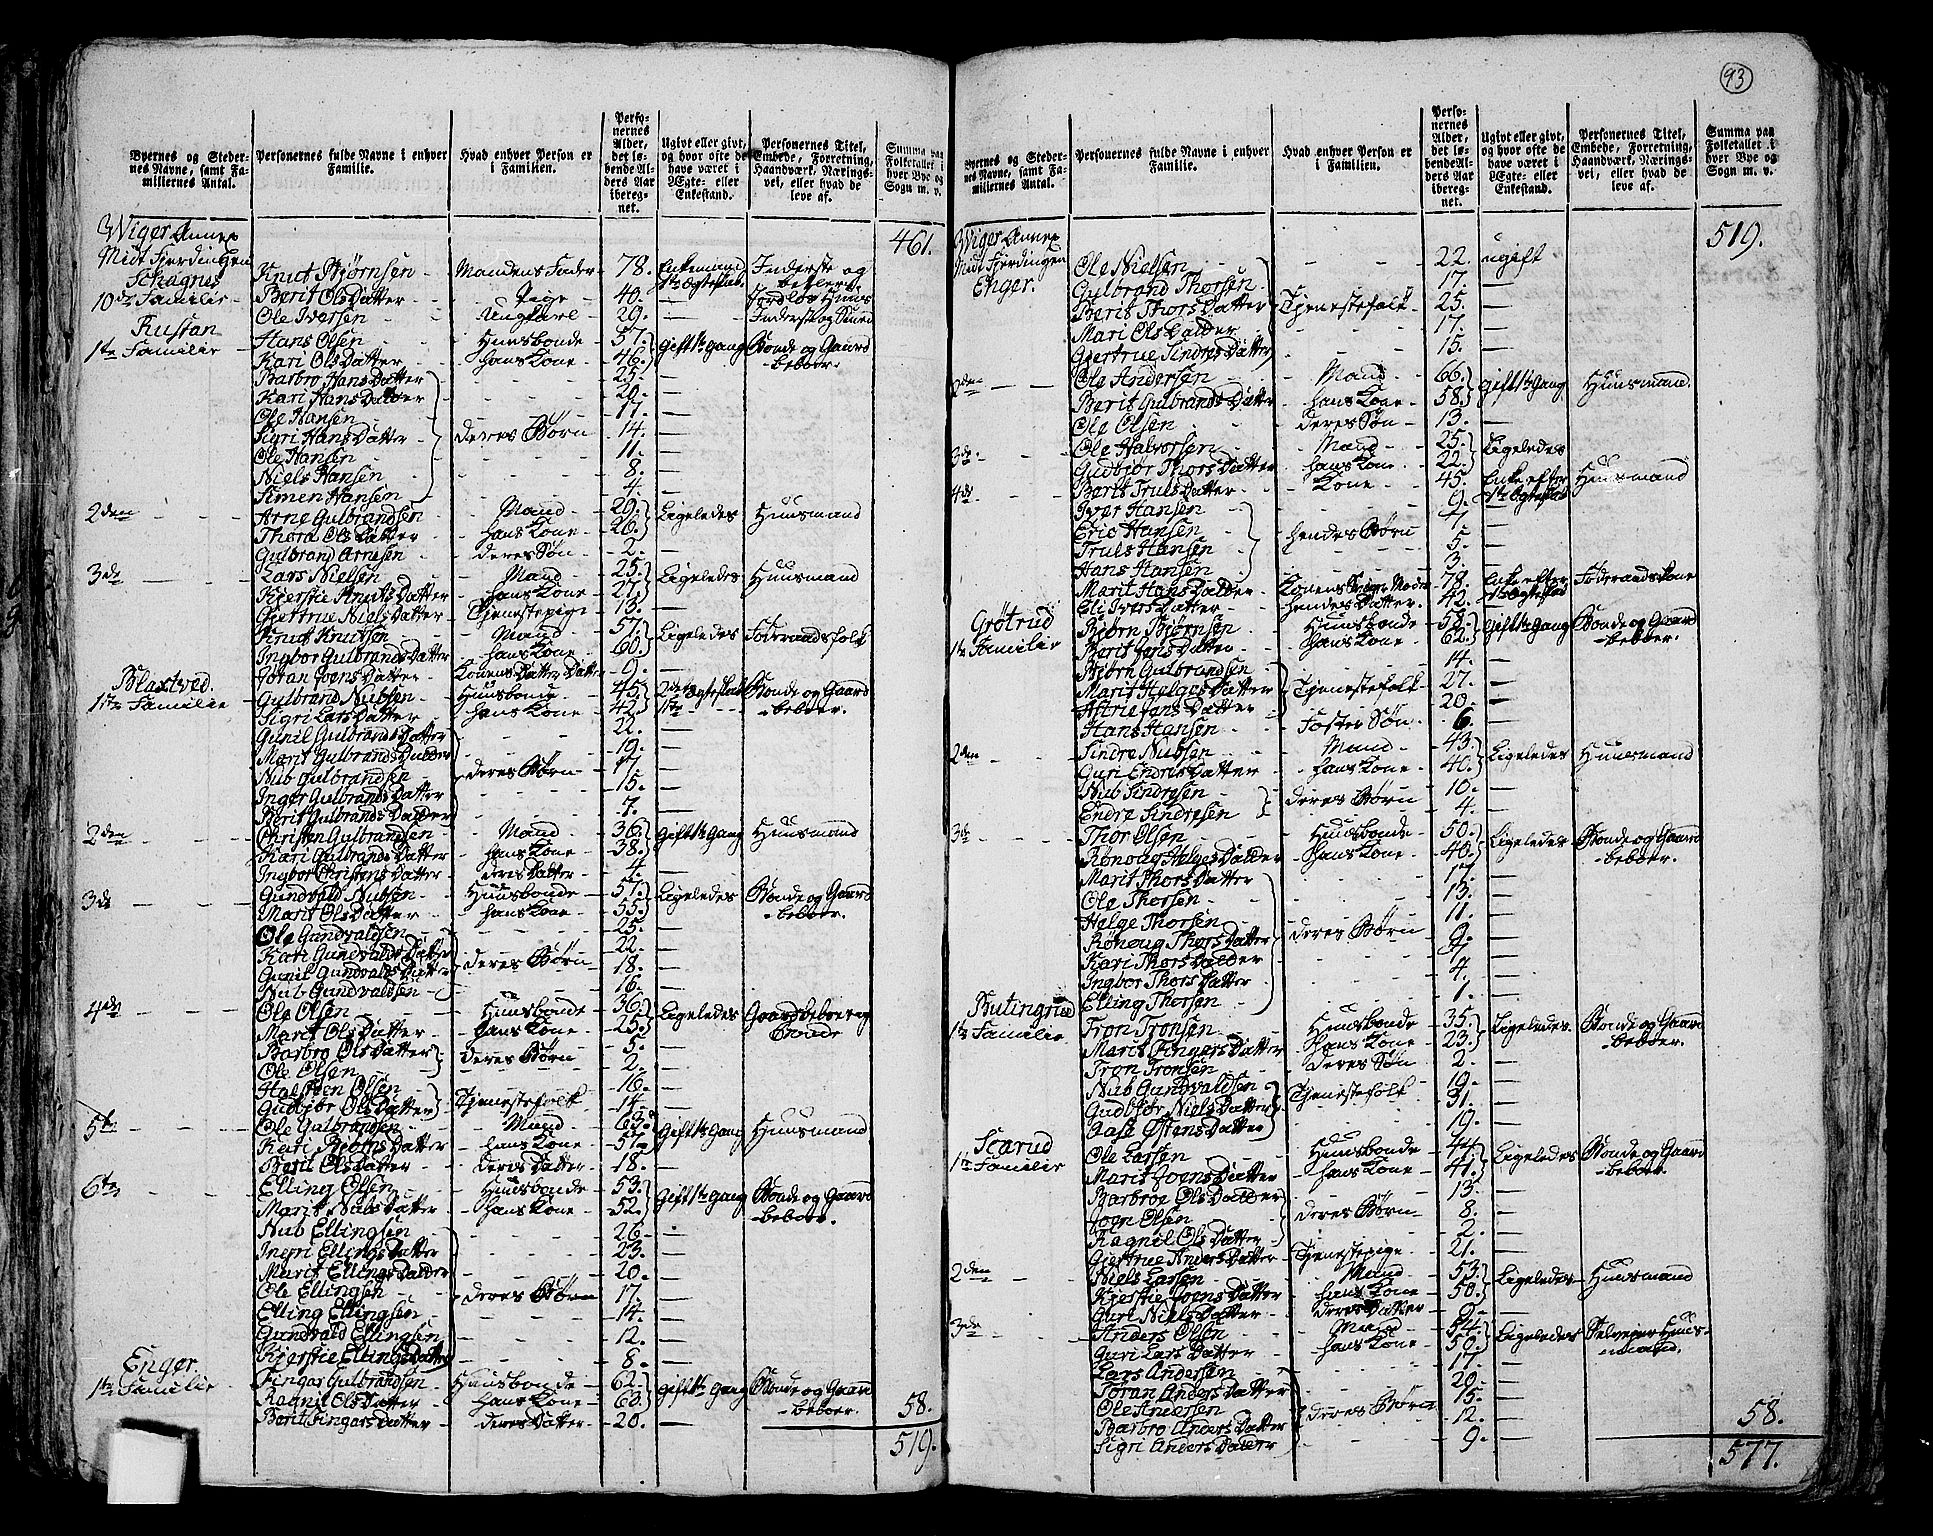 93
Byernes og Steder-
nes Navne, samt Fa-
miliernes Antal.
Personernes fulde Navne i enhver
Familie.
Hvad enhver Person er
i Familien.
Perso-
nernes
Alder,
det lø-
bende Al-
ders Aar
ibereg-
net.
Ugivt eller givt,
og hvor ofte de
have været i
Ægte- eller
Enkestand.
Personernes Titel,
Embede, Forretning,
Haandværk, Nærings-
vei, eller hvad de
leve af.
Summa paa
Folketallet i
hver Bye og
Sogn m. v.
Wiger Annex 461.
Midt Fjerdingen
Knud Bjørnsen Mandens Fader 78. Enkemand 1ste Ægteskab Inderste og
10de Familie Berit Olsdatter Pige 40. —
Ole Iversen Ungkarl 29. —
Rustan Hans Olsen Huusbonde 57. Gift 1te Gang Bonde og Gaard
1te Familie Kari Olsdatter hans Kone 46. beboer.
Barbro Hansdatter 25. —
Kari Hansdatter 20. —
Ole Hansen 17. —
Sigri Hansdatter deres Børn 14. —
Ole Hansen 11. —
Niels Hansen 8. —
Simen Hansen 4. —
2den Arne Gulbrandsen Mand 29. Ligeledes Huusmand
Thora Olsdatter hans Kone 26.
Gulbrand Arnesen deres Søn 2. —
3de Lars Nielsen Mand 25. Ligeledes Huusmand
Kjerstie Knutsdatter hans Kone 27.
Gjertrue Nielsdatter Tjenestepige 13. —
Knut Knutsen Mand 57. Ligeledes Føderaadsfolk
Ingbor Gulbrandsdatter hans Kone 60.
Joran Joensdatter Konens Datter Datter 9. —
Blaxtved. Gulbrand Nubsen Huusbonde 45. 2det Ægteskab Bonde og Gaard
1ste Familie Sigri Larsdatter hans Kone 42. 1ste beboer.
Gunil Gulbrandsdatter 22. —
Marit Gulbrandsdatter 19. —
Nub Gulbrandsen deres Børn 17. —
Inger Gulbrandsdatter 15. —
Berit Gulbrandsdatter 7. —
2den Christen Gulbrandsen Mand 36. Gift 1te Gang Huusmand
Kari Gulbrandsdatter hans Kone 38.
Ingbor Christensdatter deres Datter 4. —
3de Gundvald Nubsen Huusbonde 57. Ligeledes Bonde og Gaard
Marit Olsdatter hans Kone 55. beboer.
Ole Gundvaldsen 25. —
Kari Gundvaldsdatter deres Børn 22. —
Gunil Gundvaldsdatter 18. —
Nub Gundvaldsen 16. —
4de Ole Olsen Huusbonde 36. Ligeledes Gaardbeboer og
Marit Olsdatter hans Kone 25. Bonde
Barbro Olsdatter deres Børn 5. —
Ole Olsen 2. —
Halsten Olsen Tjenestefolk 16. —
Gudbjør Olsdatter 14. —
5te Ole Gulbrandsen Mand 63. Gift 1te Gang Huusmand
Kari Bjørnsdatter hans Kone 57.
Berit Olsdatter deres Datter 18. —
6te Elling Olsen Huusbonde 53. Gift 1te Gang Bonde og Gaard
Marit Nubsdatter hans Kone 52. beboer.
Nub Ellingsen 26. —
Ingri Ellingsdatter 23. —
Marit Ellingsdatter 20. —
Ole Ellingsen deres Børn 17. —
Elling Ellingsen 14. —
Gundvald Ellingsen 12. —
Kjerstie Ellingsdatter 8. —
Enger. Fingar Gulbrandsen Huusbonde 62. Gift 1te Gang Bonde og Gaard
1te Familie Ragnil Olsdatter hans Kone 63. beboer.
Berit Fingarsdatter deres Datter 20. — 58.
519.
Byernes og Steder-
nes Navne, samt Fa-
miliernes Antal.
Personernes fulde Navne i enhver
Familie.
Hvad enhver Person er
i Familien.
Perso-
nernes
Alder,
det lø-
bende Al-
ders Aar
ibereg-
net.
Ugivt eller givt,
og hvor ofte de
have været i
Ægte- eller
Enkestand.
Personernes Titel,
Embede, Forretning,
Haandværk, Nærings-
vei, eller hvad de
leve af.
Summa paa
Folketallet i
hver Bye og
Sogn m. v.
Wiger Annex 519.
Midt Fjerdingen Ole Nielsen 22. ugift
Enger. Gulbrand Thorsen 17. —
Berit Thorsdatter Tjenestefolk 25. —
Mari Olsdatter 17. —
Gjertrue Sindresdatter 15. —
2den Ole Andersen Mand 66. Gift 1te Gang Huusmand.
Berit Gulbrandsdatter hans Kone 58.
Ole Olsen deres Søn 13. —
3de Ole Halvorsen Mand 25. Ligeledes
Gudbjør Thorsdatter hans Kone 22.
4de Berit Trulsdatter Kone 45. Enke efter 1te Ægteskab Huusmand
Iver Hansen 9. —
Eric Hansen hendes Børn 7. —
Truls Hansen 5. —
Hans Hansen 3. —
Marit Hansdatter 78. Enke efter 1te Ægteskab Føderaadskone
Eli Iversdatter hendes Datter 42. —
Grøtrud Bjørn Bjørnsen Huusbonde 52. Gift 1te Gang Bonde og Gaard
1te Familie Berit Jensdatter hans Kone 62. beboer.
Bjørn Gulbrandsen 14. —
Marit Helgesdatter Tjenestefolk 27. —
Astrie Jansdatter 20. —
Hans Hansen Foster Søn 6. —
2den Sindre Nubsen Mand 43. Ligeledes Huusmand
Guri Endresdatter hans Kone 40.
Nub Sindresen deres Børn 10. —
Endre Sindresen 4. —
3de Thor Olsen Huusbonde 50. Ligeledes Bonde og Gaard
Rønoug Helgesdatter hans Kone 40. beboer.
Marit Thorsdatter 17. —
Ole Thorsen 13. —
Helge Thorsen 11. —
Rønoug Thorsdatter deres Børn 9. —
Kari Thorsdatter 7. —
Ingbor Thorsdatter 4. —
Elling Thorsen 1. —
Butingrud Tron Tronsen Huusbonde 35. Ligeledes Bonde og Gaard
1te Familie Marit Fingersdatter hans Kone 23. beboer.
Tron Tronsen deres Søn 2. —
Nub Gundvaldsen Tjenestefolk 19. —
Gudbjør Nielsdatter 31. —
Aase Østensdatter 19. —
Scarud Ole Larsen Huusbonde 44. Ligeledes Bonde og Gaard
1te Familie Marit Joensdatter hans Kone 41. beboer.
Barbroe Olsdatter 13. —
Joen Olsen deres Børn 8. —
Ragnil Olsdatter 2. —
Gjertrue Andersdatter Tjenestepige 21. —
2den Niels Larsen Mand 53. Ligeledes Huusmand
Kjerstie Joensdatter hans Kone 50.
Guri Nielsdatter deres Datter 9. —
3de Anders Olsen Mand 54. Ligeledes Selveier Huus-
Guri Larsdatter hans Kone 59. mand.
Lars Andersen 17. —
Joran Andersdatter 20. —
Ole Andersen deres Børn 15. —
Barbro Andersdatter 12. —
Sigri Andersdatter 9. — 58.
577.